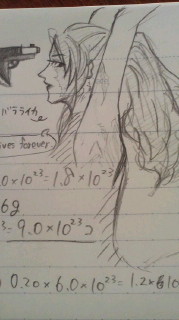 バラライカ
ives Forever
.0×10²³=1.8×10²³
6g
³=9.0×10²³コ
) 0.20×6.0×10²³=1.2×10